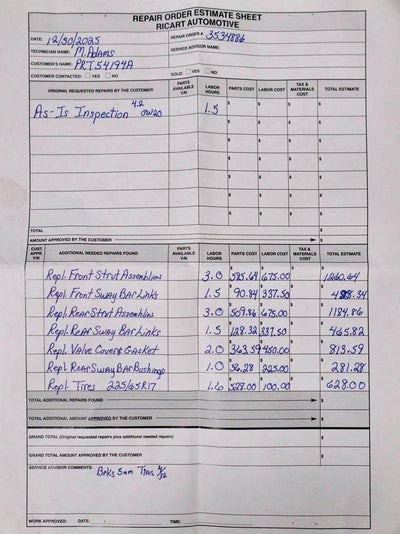 REPAIR ORDER ESTIMATE SHEET
RICART AUTOMOTIVE
DATE: 12/30/2025 REPAIR ORDER #: 3534886
TECHNICIAN NAME: M. Adams SERVICE ADVISOR NAME:
CUSTOMER'S NAME: PRT54194A
CUSTOMER CONTACTED: YES NO SOLD: YES NO
ORIGINAL REQUESTED REPAIRS BY THE CUSTOMER PARTS AVAILABLE Y/N LABOR HOURS PARTS COST LABOR COST TAX & MATERIALS COST TOTAL ESTIMATE
As-Is Inspection 4.2 0W20 1.5 $ $ $ $
$ $ $ $
$ $ $ $
$ $ $ $
$ $ $ $
$ $ $ $
TOTAL
AMOUNT APPROVED BY THE CUSTOMER $
CUST. APPR. Y/N ADDITIONAL NEEDED REPAIRS FOUND PARTS AVAILABLE Y/N LABOR HOURS PARTS COST LABOR COST TAX & MATERIALS COST TOTAL ESTIMATE
Repl. Front Strut Assemblies 3.0 585.64 675.00 1260.64
Repl. Front Sway Bar Links 1.5 90.84 337.50 428.34
Repl. Rear Strut Assemblies 3.0 509.86 675.00 1184.86
Repl. Rear Sway Bar Links 1.5 128.32 337.50 465.82
Repl. Valve Cover & Gasket 2.0 363.59 450.00 813.59
Repl. Rear Sway Bar Bushings 1.0 56.28 225.00 281.28
Repl. Tires 225/65R17 1.6 528.00 100.00 628.00
TOTAL ADDITIONAL REPAIRS FOUND $
TOTAL ADDITIONAL AMOUNT APPROVED BY THE CUSTOMER $
GRAND TOTAL (Original requested repairs plus additional needed repairs) $
GRAND TOTAL AMOUNT APPROVED BY THE CUSTOMER $
SERVICE ADVISOR COMMENTS:
Brks 5mm Tires 4/32
WORK APPROVED: DATE: TIME: